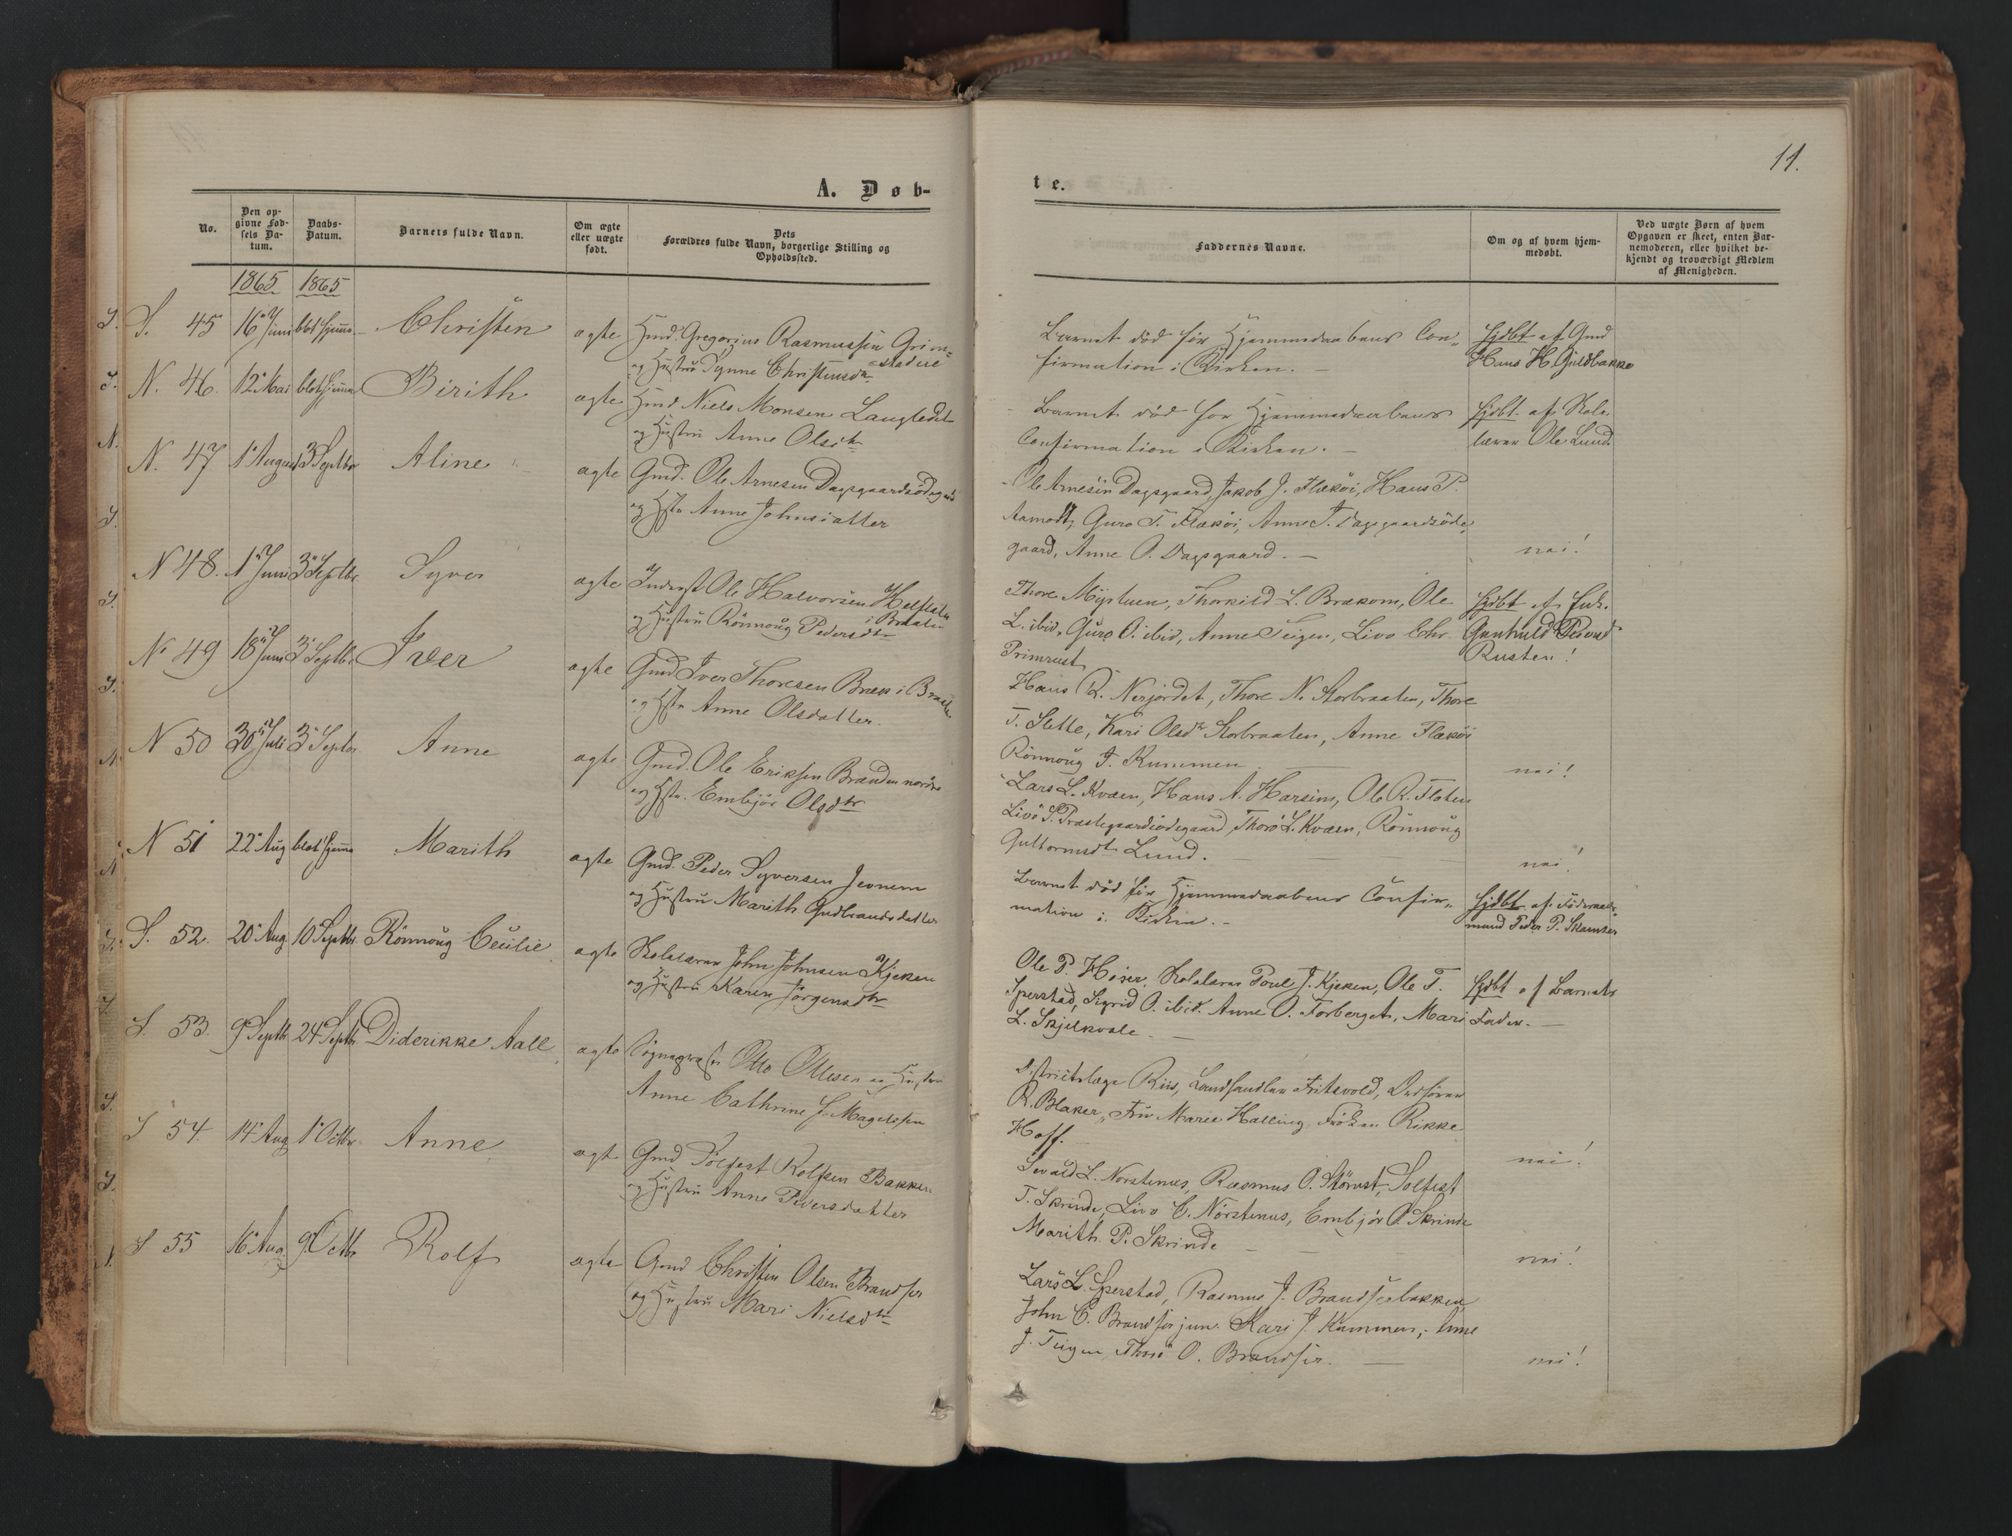 11.
A. Døb-
te.
No.
Den op-
givne Fød-
sels Da-
tum.
Daabs-
Datum.
Barnets fulde Navn.
Om ægte
eller uægte
født.
Dets
Forældres fulde Navn, borgerlige Stilling og
Opholdssted.
Faddernes Navne.
Om og af hvem hjem-
medøbt.
Ved uægte Børn af hvem
Opgaven er skeet, enten Bar-
nemoderen, eller hvilket be-
kjendt og troværdigt Medlem
af Menigheden.
1865 1865
S. 45 16 Juni blot hjemme Christen ægte Gmd. Gregorius Rasmussen Grim-
stadeie
og Hustru Synne Christensdr
Barnet død før Hjemmedaabens Con-
firmation i Kirken. -
Hjdbt af Gmd
Hans H. Guldbakke
N. 46. 12 Mai blot hjemme Birith ægte Gmd Niels Monsen
og Hustru Anne Olsdtr
Barnet død før Hjemmedaabens
Confirmation i Kirken. -
Hjdbt af Skole
lærer Ole Lund
N. 47 1 August 3 Septbr Aline ægte Gmd. Ole Arnesen
og Hstr Anne Johnsdatter
Ole Arnesen Dagsgaard, Jakob J. Flækøi, Hans P.
Aamodt, Guro T. Flækøi, Anne J. Dagsgaardsøde-
gaard, Anne O. Dagsgaard. -
nei!
N 48. 1 Juni 3 Septbr Syver ægte Inderst Ole Halvorsen
i Braaten
og Hustru Rönnoug Pedersdtr
Thore Thorkild L. Brækom, Ole
L. ibid, Guro O. ibid, Anne Teigen, Livo Chr.
Primrust
Hjdbt af Enk.
Gunhild
Rusten!
N 49 18 Juni 3 Septbr Iver ægte Gmd Iver Thoresen Bræk i Braaten
og Hstr Anne Olsdatter.
Hans R. Nerjordet, Thore N. Storbraaten, Thore
T. Slette, Kari Olsdr Storbraaten, Anne Flækøi
Rönnoug J. Rummen
nei!
N 50 30 Juli 3 Septbr Anne ægte Gmd. Ole Eriksen Branden nordre
og Hstr. Embjør Olsdtr
Lars L. Kvæen, Hans A. Harsim, Ole R. Floten
Livö S. Præstegaardsødegaard, Thorö L. Kvæen, Rönnoug
Guttormsdtr Lund. -
nei!
N 51 22 Aug blot hjemme Marith ægte Gmd. Peder Syversen Jevnem
og Hustru Marith Gudbrandsdatter
Barnet død før Hjemmedaabens Confir-
mation i Kirken. -
Hjdbt af Föderaads-
mand Peder P. Skamser
S. 52. 20 Aug. 10 Septbr. Rönnoug Cecilie ægte Skolelærer John Johnsen Kjeken
og Hustru Karen Jörgensdtr
Ole P. Höier, Skolelærer Poul J. Kjeken, Ole T.
Sperstad, Sigrid O. ibid. Anne O. Forberget, Mari
L. Skjelkvale -
Hjdbt af Barnets
Fader. -
S. 53. 9 Septbr 24 Septbr Diderikke Aall ægte Sognepræst Otto Ottesen og Hustru
Anne Cathrine f. Magelssen
Districtslæge Riis, Landhandler Fritsvold,
R. Blaker, Fru Maren Halling, Fröken Rikke
Hoff.
nei!
S 54. 14 Aug 1 Octbr. Anne ægte Gmd Solfest Rolfsen Bakken
og Hustru Anne Pedersdatter
Sevald L. Norstenus, Rasmus O. Storust, Solfest
T. Skrinde, Livo C. Norstenus, Embjør O. Skrinde
Marith P. Skrinde -
nei!
S 55 16 Aug. 9 Octbr Rolf ægte Gmd Christen Olsen Brandsør
og Hustru Mari Nielsdtr
Lars L. Sperstad, Rasmus J. Brandsørbakken
John C. Brandsør jun. Kari J. Kummen, Anne
J. Teigen, Thorö O. Brandsør. -
nei!